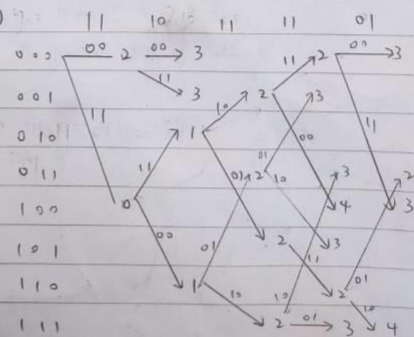 11 10 11 11 01
000 00 2 00 3 11 2 00 3
001 11 3 10 2 3
010 11 1 00 11
011 11 01 2 10 3 2
100 0 00 01 4 3
101 2 11 3
110 1 10 2 01 10
111 2 01 3 4